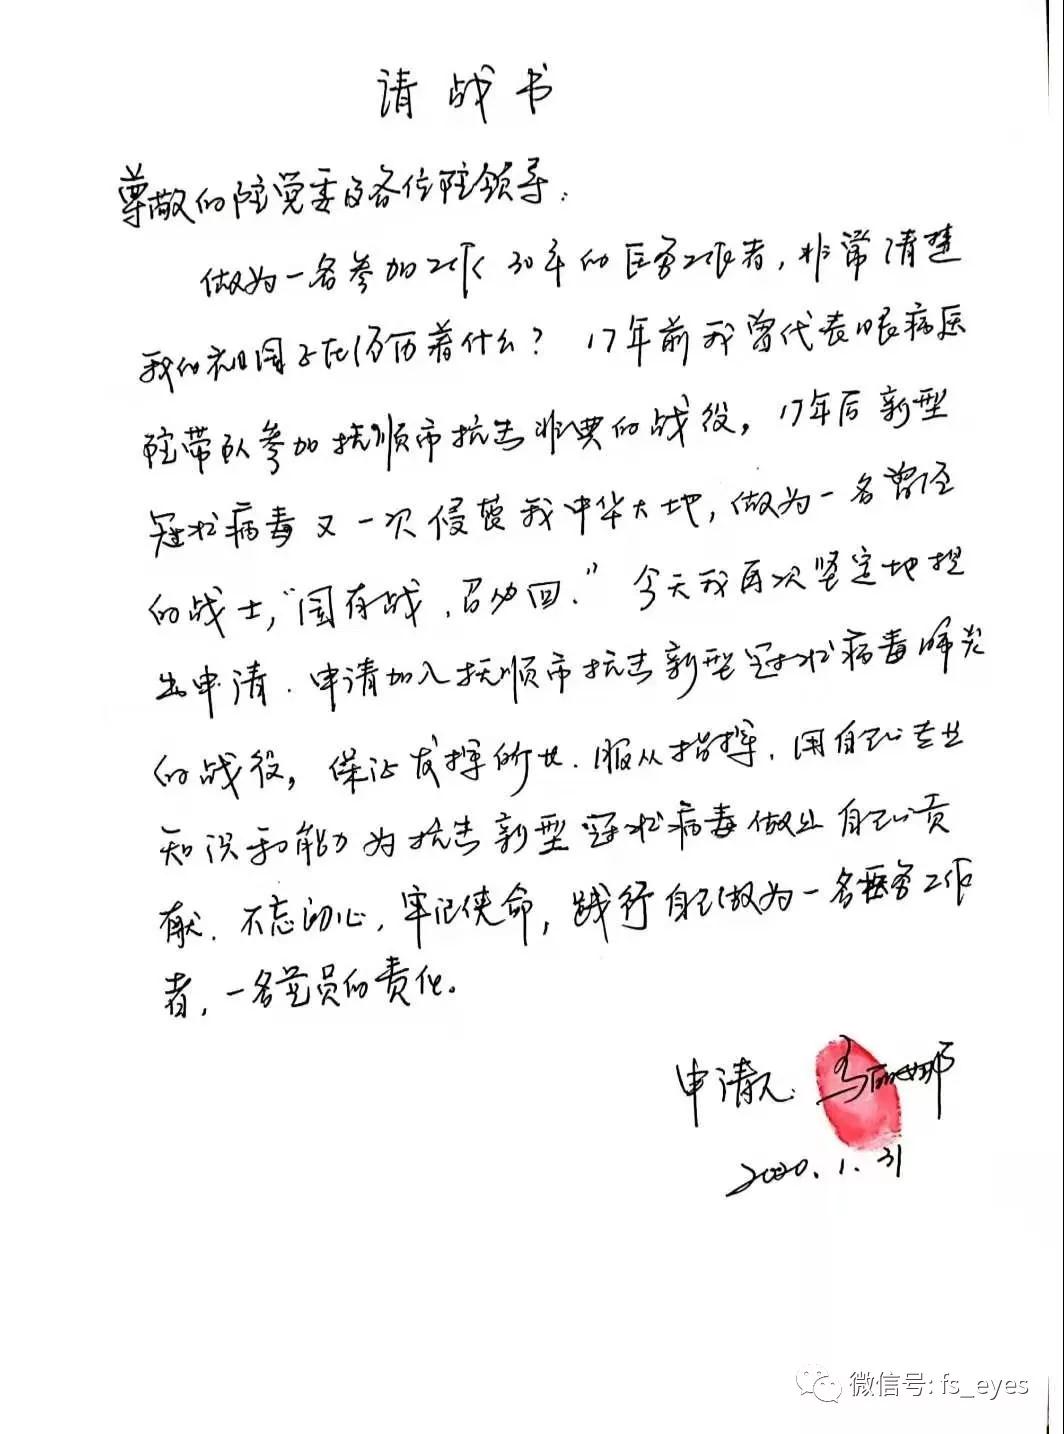 请战书
尊敬的院党委及各位院领导:
做为一名参加工作30年的医务工作者,非常清楚
我的祖国正在经历着什么?17年前我曾代表眼病医
院带队参加抚顺市抗击非典的战役,17年后新型
冠状病毒又一次侵袭我中华大地,做为一名曾经
的战士,“国有战,召必回.”今天我再次坚定地提
出申请.申请加入抚顺市抗击新型冠状病毒肺炎
的战役,保证发挥所长.服从指挥.用自己的专业
知识和能力为抗击新型冠状病毒做出自己的贡
献.不忘初心,牢记使命,践行自己做为一名医务工作
者,一名党员的责任。
申请人:马丽娜
2020.1.31
微信号: fs_eyes